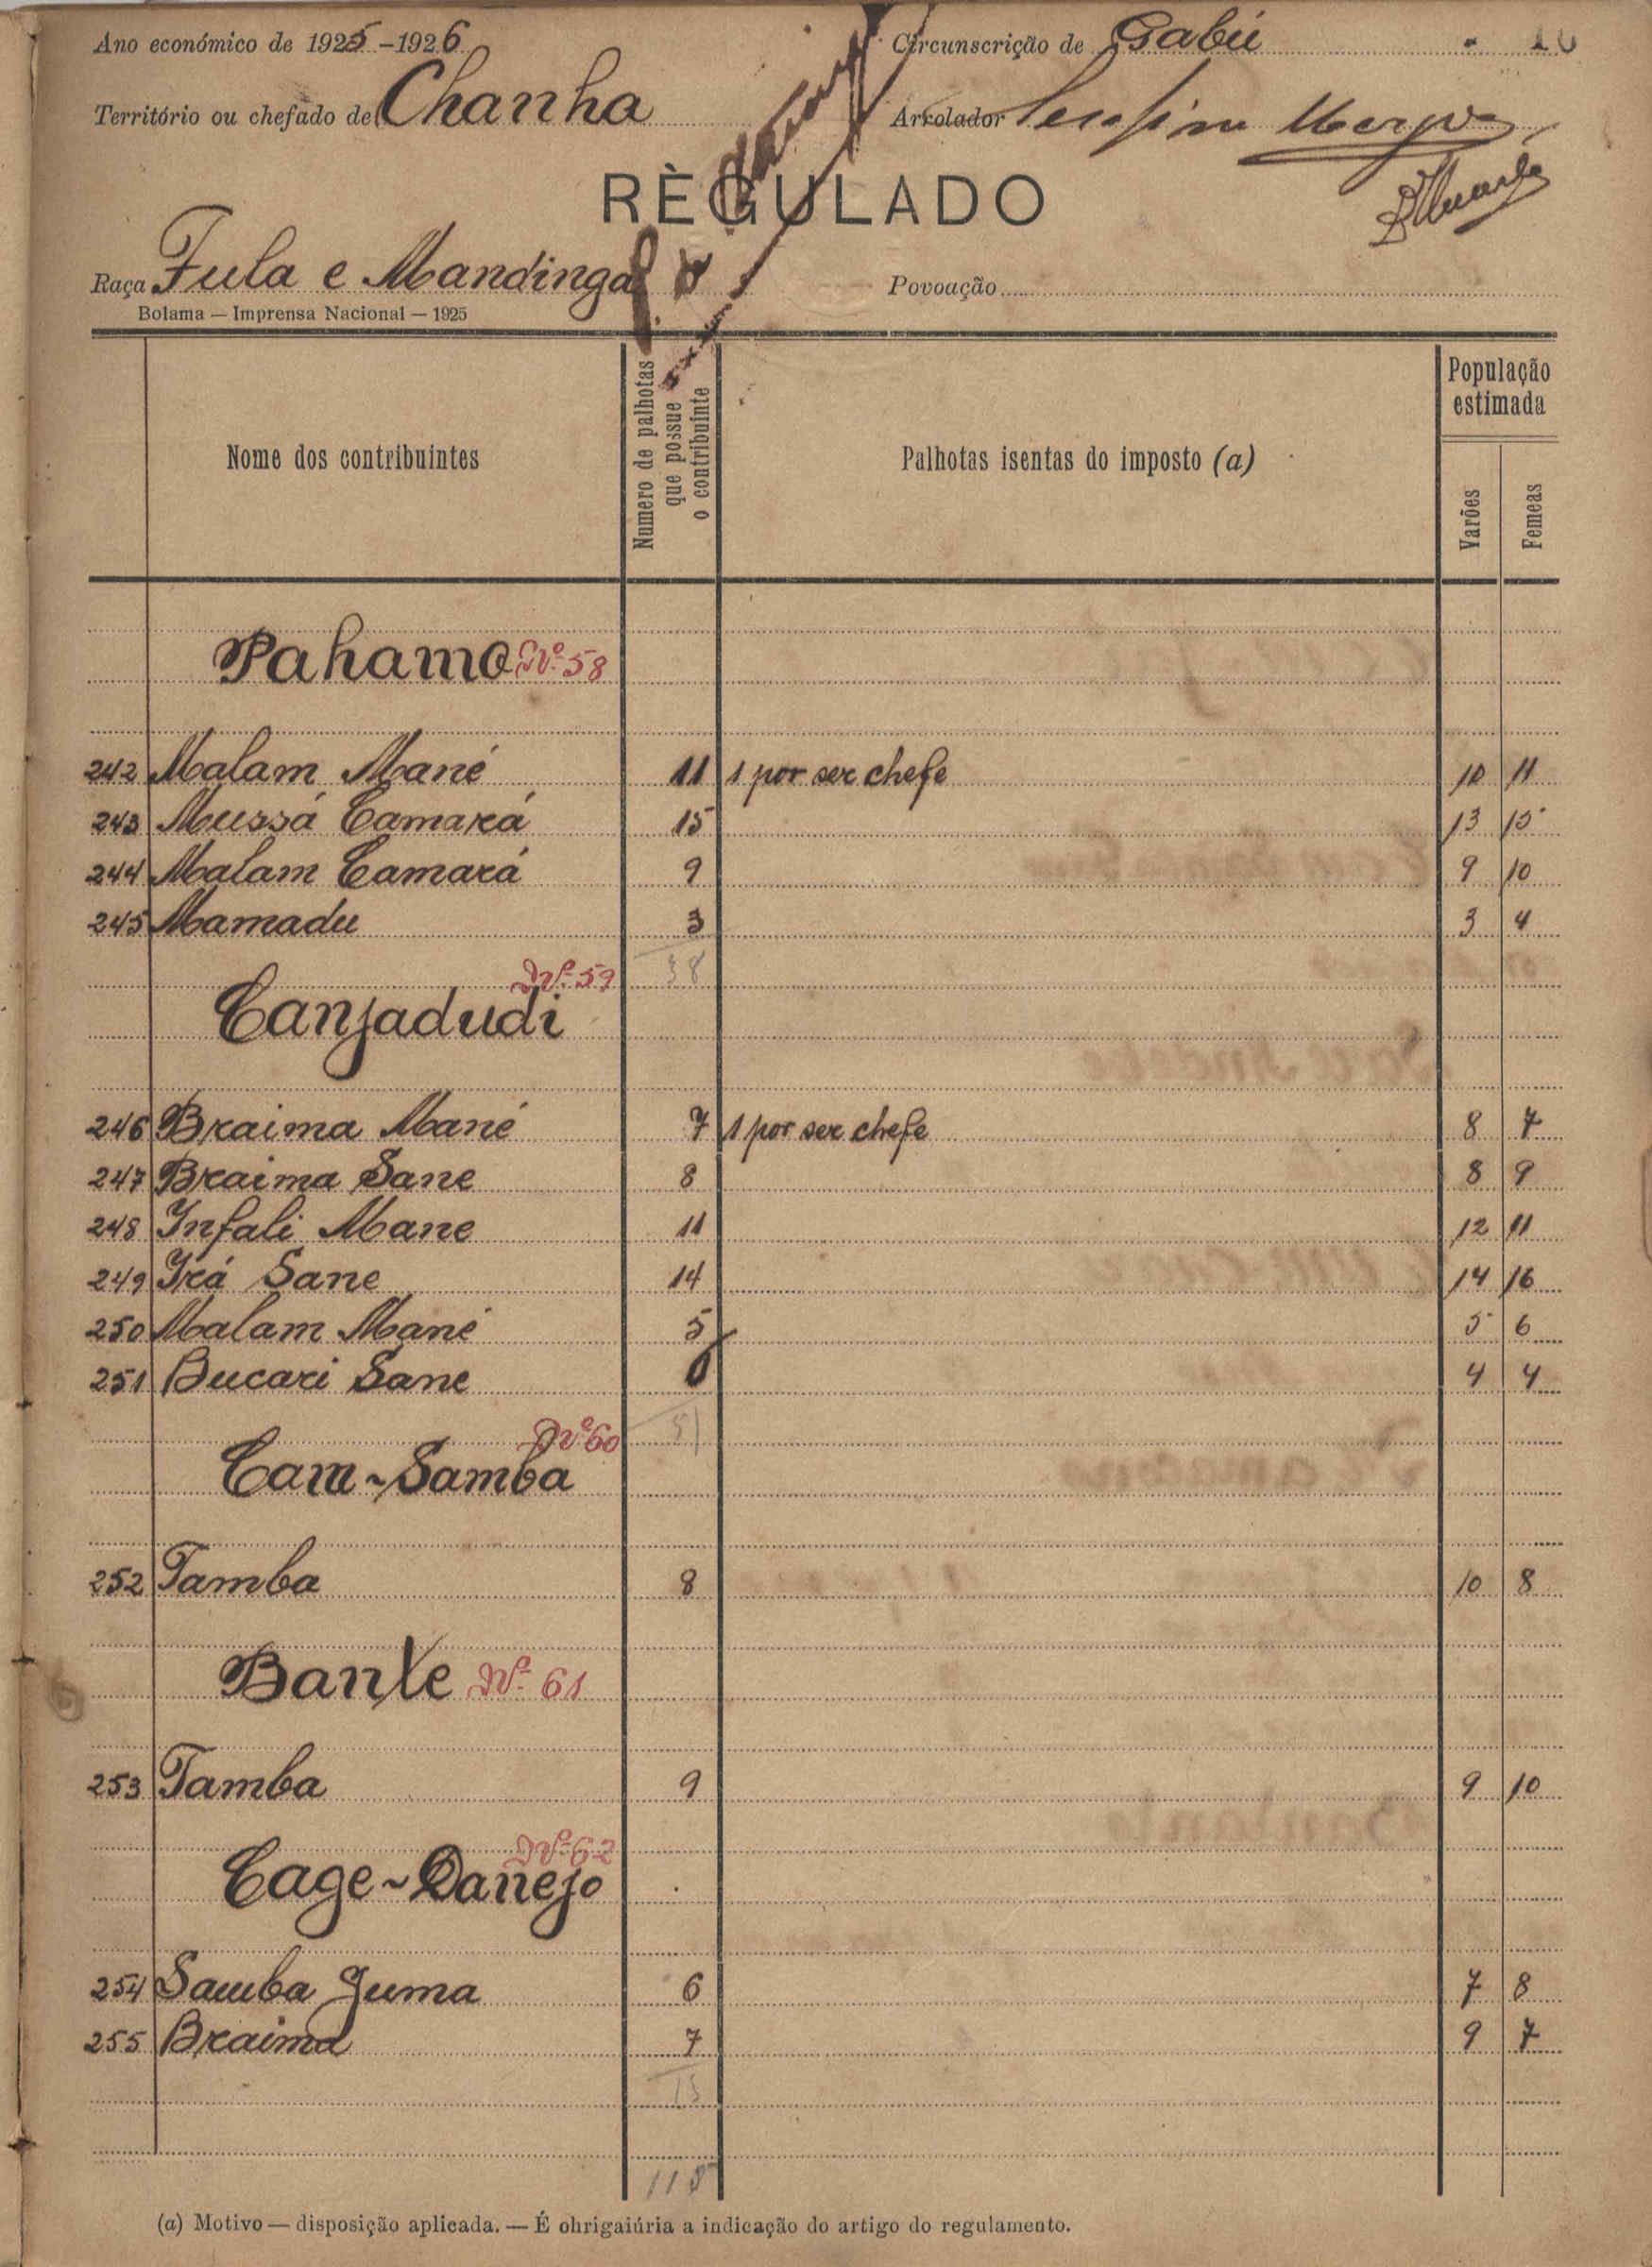 Ano económico de 1925-1926
Circunscrição de Gabú
Território ou chefado de Chanha
Arrolador
RÈGULADO
Raça Fula e Mandinga
Povoação
Bolama — Imprensa Nacional — 1925
Nome dos contribuintes
Numero de palhotas que possue o contribuinte
Palhotas isentas do imposto (a)
População estimada
Varões
Femeas
Pahama Nº 58
242 Malam Mané 11 1 por ser chefe 10 11
243 Mussá Camará 15 13 15
244 Malam Camará 9 9 10
245 Mamadu 3 3 4
38
Nº 59
Canjadudi
246 Braima Mané 7 1 por ser chefe 8 7
247 Braima Sane 8 8 9
248 Infali Mane 11 12 11
249 Irá Sane 14 14 16
250 Malam Mané 5 5 6
251 Bucari Sane 4 4
51
Nº 60
Cam-Samba
252 Tamba 8 10 8
Bante Nº 61
253 Tamba 9 9 10
Nº 62
Cage-Danejo
254 Samba Juma 6 7 8
255 Braima 7 9 7
13
(a) Motivo — disposição aplicada. — É ohrigaiúria a indicação do artigo do regulamento.